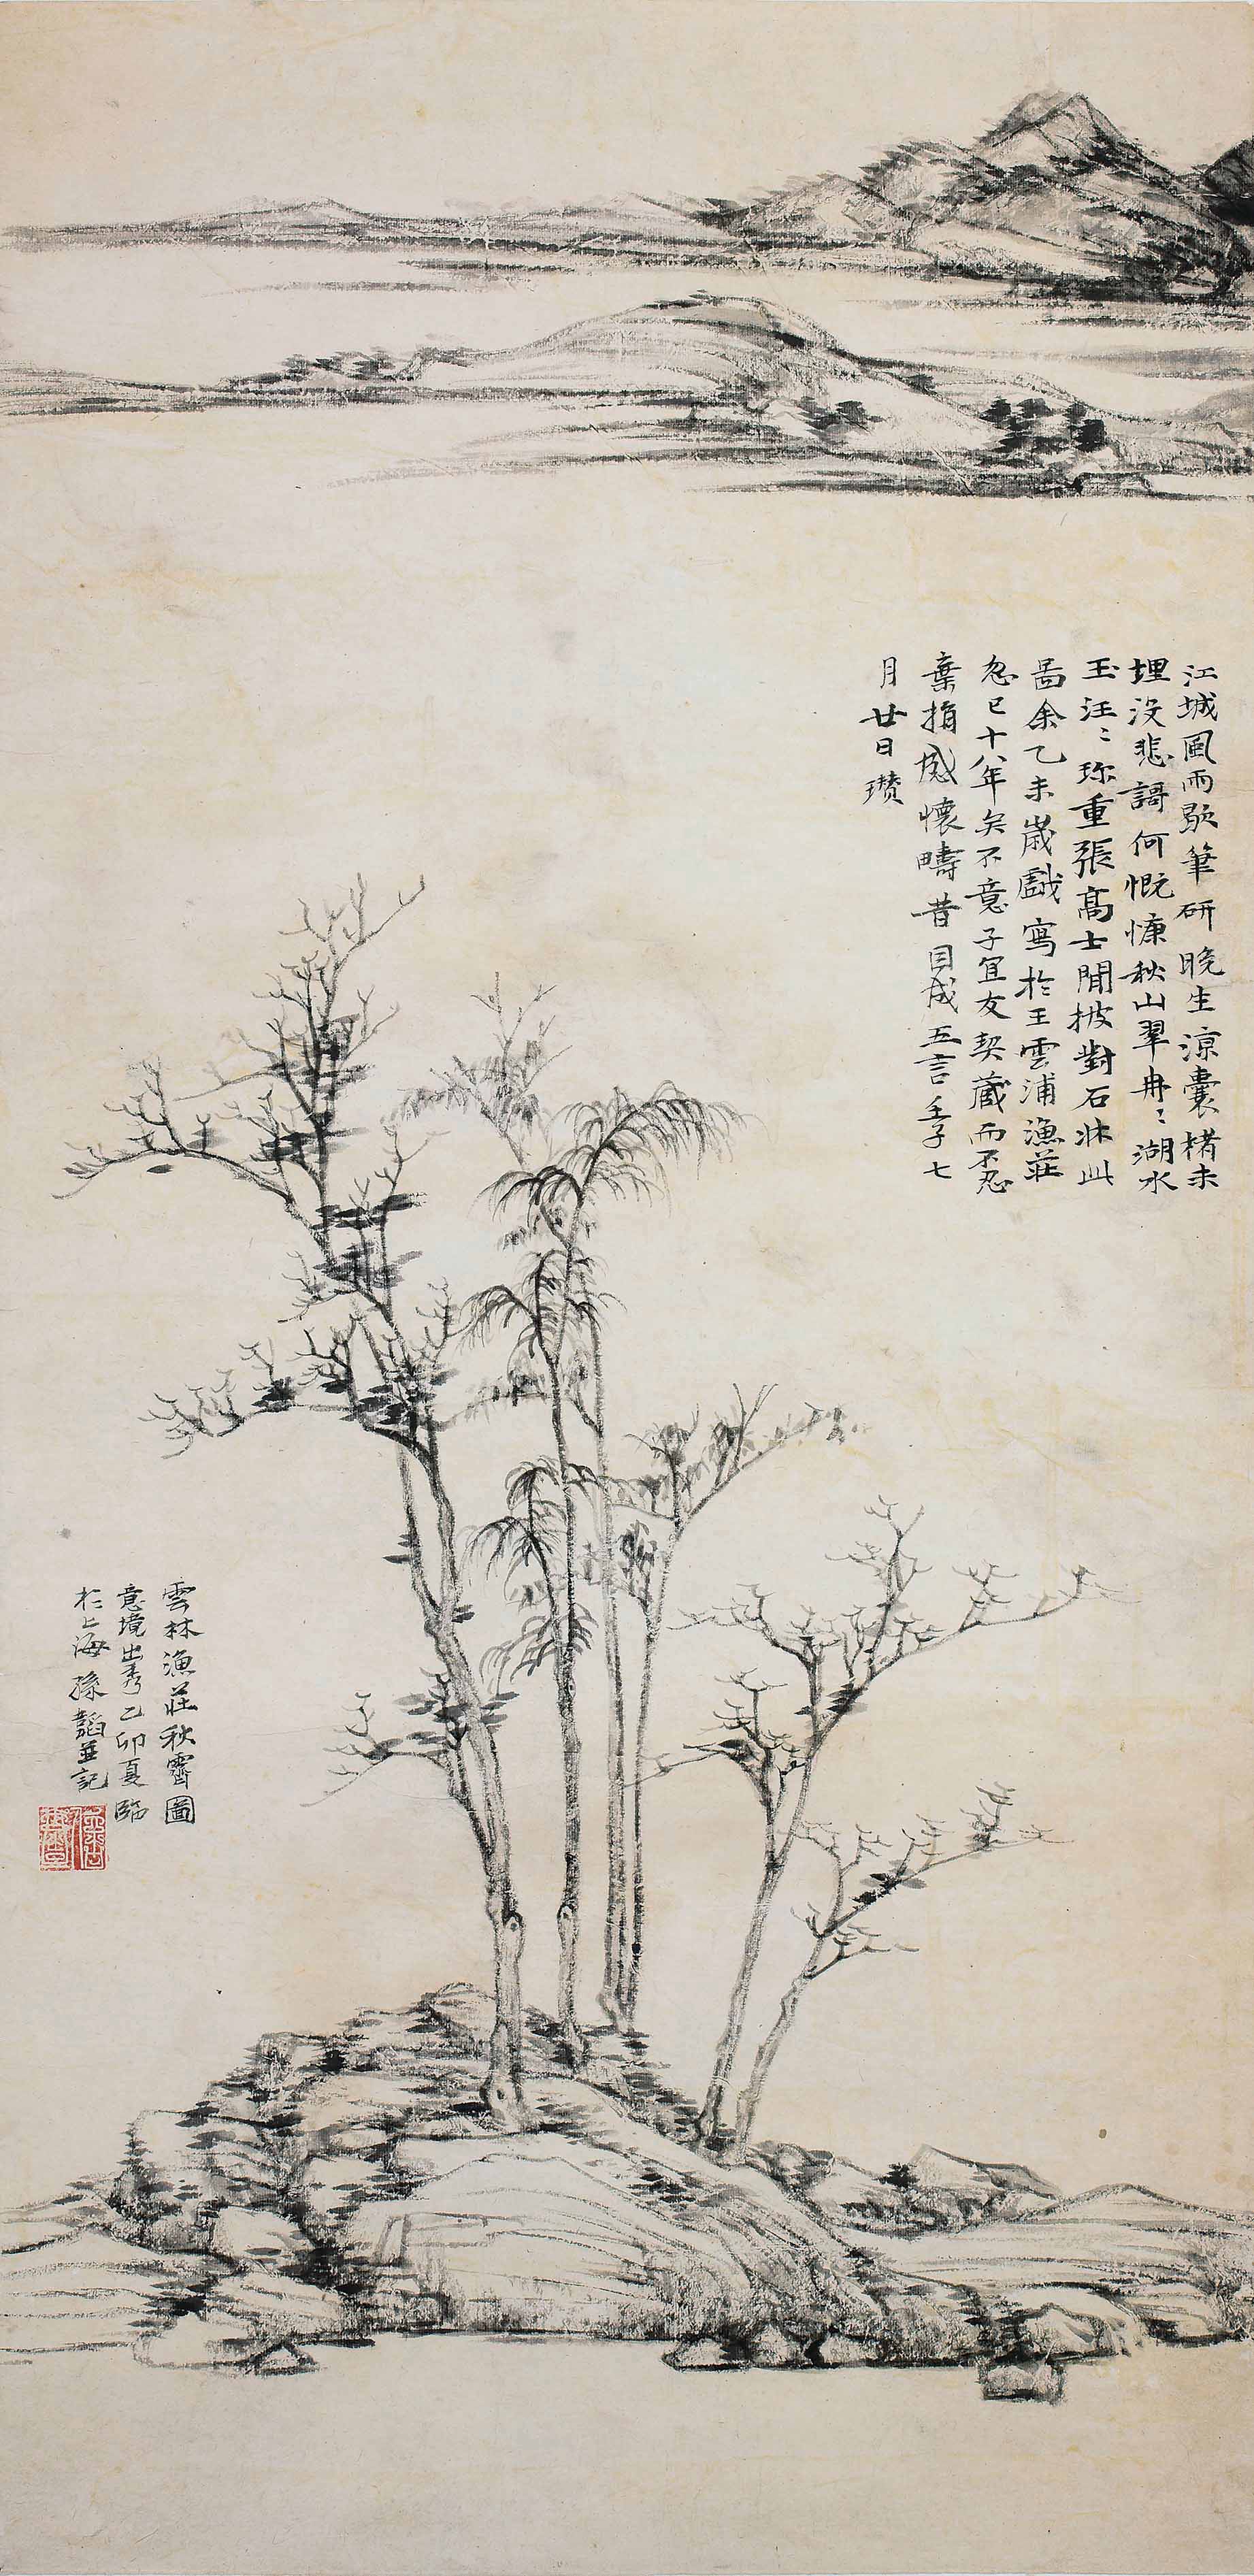 江城風雨歇筆研晚生涼囊楮未
埋沒悲謌何慨慷秋山翠冉〻湖水
玉汪〻珎重張高士閒披對石牀此
啚余乙未歲戲寫於王雲浦漁莊
忽已十八年矣不意子宜友契藏而不忍
棄捐感懷疇昔因成五言壬子七
月廿日瓚
雲林漁莊秋霽圖
意境出秀乙卯夏臨
於上海孫韜並記